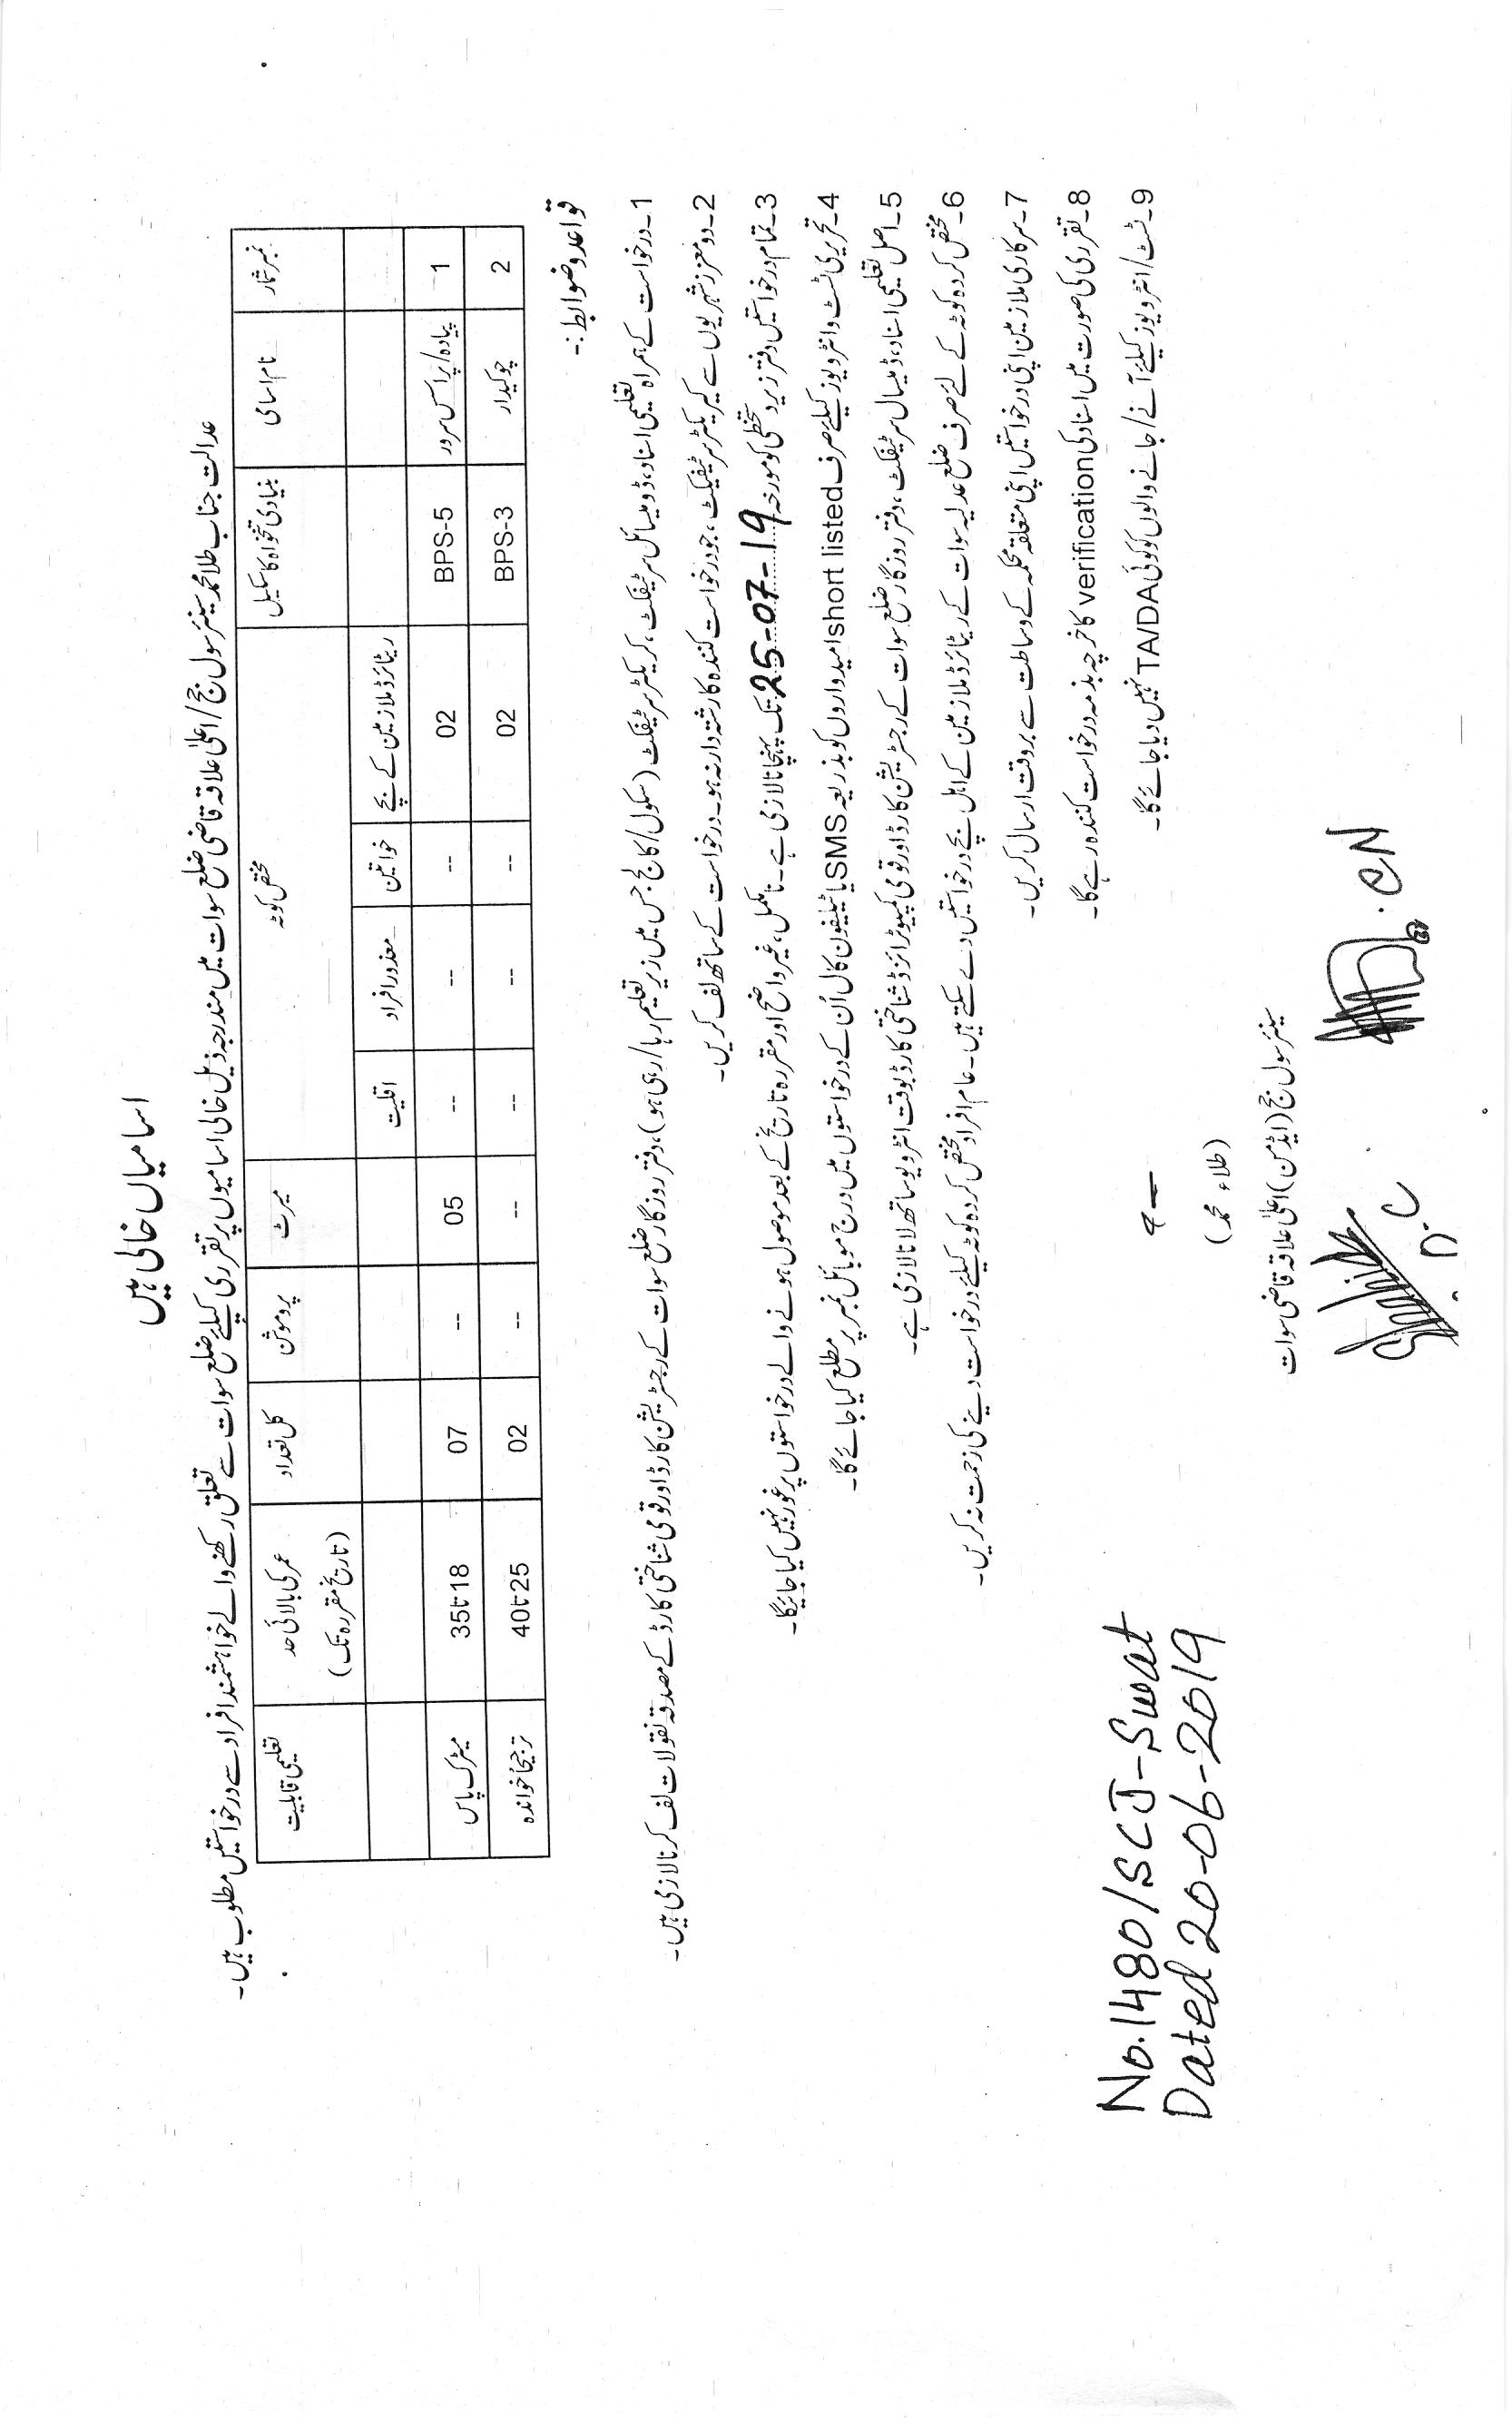 اسامیاں خالی ہیں
عدالت جناب طلا محمد سینئر سول جج/اعلیٰ علاقہ قاضی ضلع سوات میں مندرجہ ذیل خالی اسامیوں پر تقرری کیلئے ضلع سوات سے تعلق رکھنے والے خواہشمند افراد سے درخواستیں مطلوب ہیں۔
نمبر شمار نام اسامی بنیادی تنخواہ کا سکیل مختص کوٹہ میرٹ پروموشن کل تعداد عمر کی بالائی حد (تاریخ مقررہ تک) تعلیمی قابلیت
ریٹائرڈ ملازمین کے بچے خواتین معذور افراد اقلیت
1 پیادہ/پراسس سرور BPS-5 02 -- -- -- 05 -- 07 18 تا 35 میٹرک پاس
2 چوکیدار BPS-3 02 -- -- -- -- -- 02 25 تا 40 ترجیحاً خواندہ
قواعد و ضوابط:-
1۔ درخواست کے ہمراہ تعلیمی اسناد، ڈومیسائل سرٹیفکٹ، کریکٹر سرٹیفکٹ (سکول/کالج جس میں زیر تعلیم رہا/رہی ہو)، دفتر روزگار ضلع سوات کے رجسٹریشن کارڈ اور قومی شناختی کارڈ کے مصدقہ نقولات لف کرنا لازمی ہیں۔
2۔ دو معزز شہریوں سے کیریکٹر سرٹیفیکٹ، جو درخواست کنندہ کا رشتہ دار نہ ہو۔ درخواست کے ساتھ لف کریں۔
3۔ تمام درخواستیں دفتر زیر دستخطی کو مورخہ 25-07-19 تک پہنچانا لازمی ہے۔ نامکمل، غیر واضح اور مقررہ تاریخ کے بعد موصول ہونے والے درخواستوں پر غور نہیں کیا جائیگا۔
4۔ تحریری ٹسٹ و انٹرویوز کیلئے صرف short listed امیدواروں کو بذریعہ SMS یا ٹیلیفون کال اُن کے درخواستوں میں درج موبائل نمبر پر مطلع کیا جائے گا۔
5۔ اصل تعلیمی اسناد، ڈمیسال سرٹیفکٹ، دفتر روزگار ضلع سوات کے رجسٹریشن کارڈ اور قومی کمپیوٹرائزڈ شناختی کارڈ بوقت انٹرویو ساتھ لانا لازمی ہے۔
6۔ مختص کردہ کوٹہ کے لئے صرف ضلع عدلیہ سوات کے ریٹائرڈ ملازمین کے اہل بچے درخواستیں دے سکتے ہیں۔ عام افراد مختص کردہ کوٹہ کیلئے درخواست دینے کی زحمت نہ کریں۔
7۔ سرکاری ملازمین اپنی درخواستیں اپنی متعلقہ محکمہ کے وساطت سے بروقت ارسال کریں۔
8۔ تقرری کی صورت میں اسناد کی verification کا خرچہ بذمہ درخواست کنندہ رہے گا۔
9۔ ٹسٹ/انٹرویوز کیلئے آنے/جانے والوں کو کوئی TA/DA نہیں دیا جائے گا۔
(طلاء محمد)
سینئر سول جج (ایڈمن) اعلیٰ علاقہ قاضی سوات
No.1480/SCJ-Swat
Dated 20-06-2019
D.C